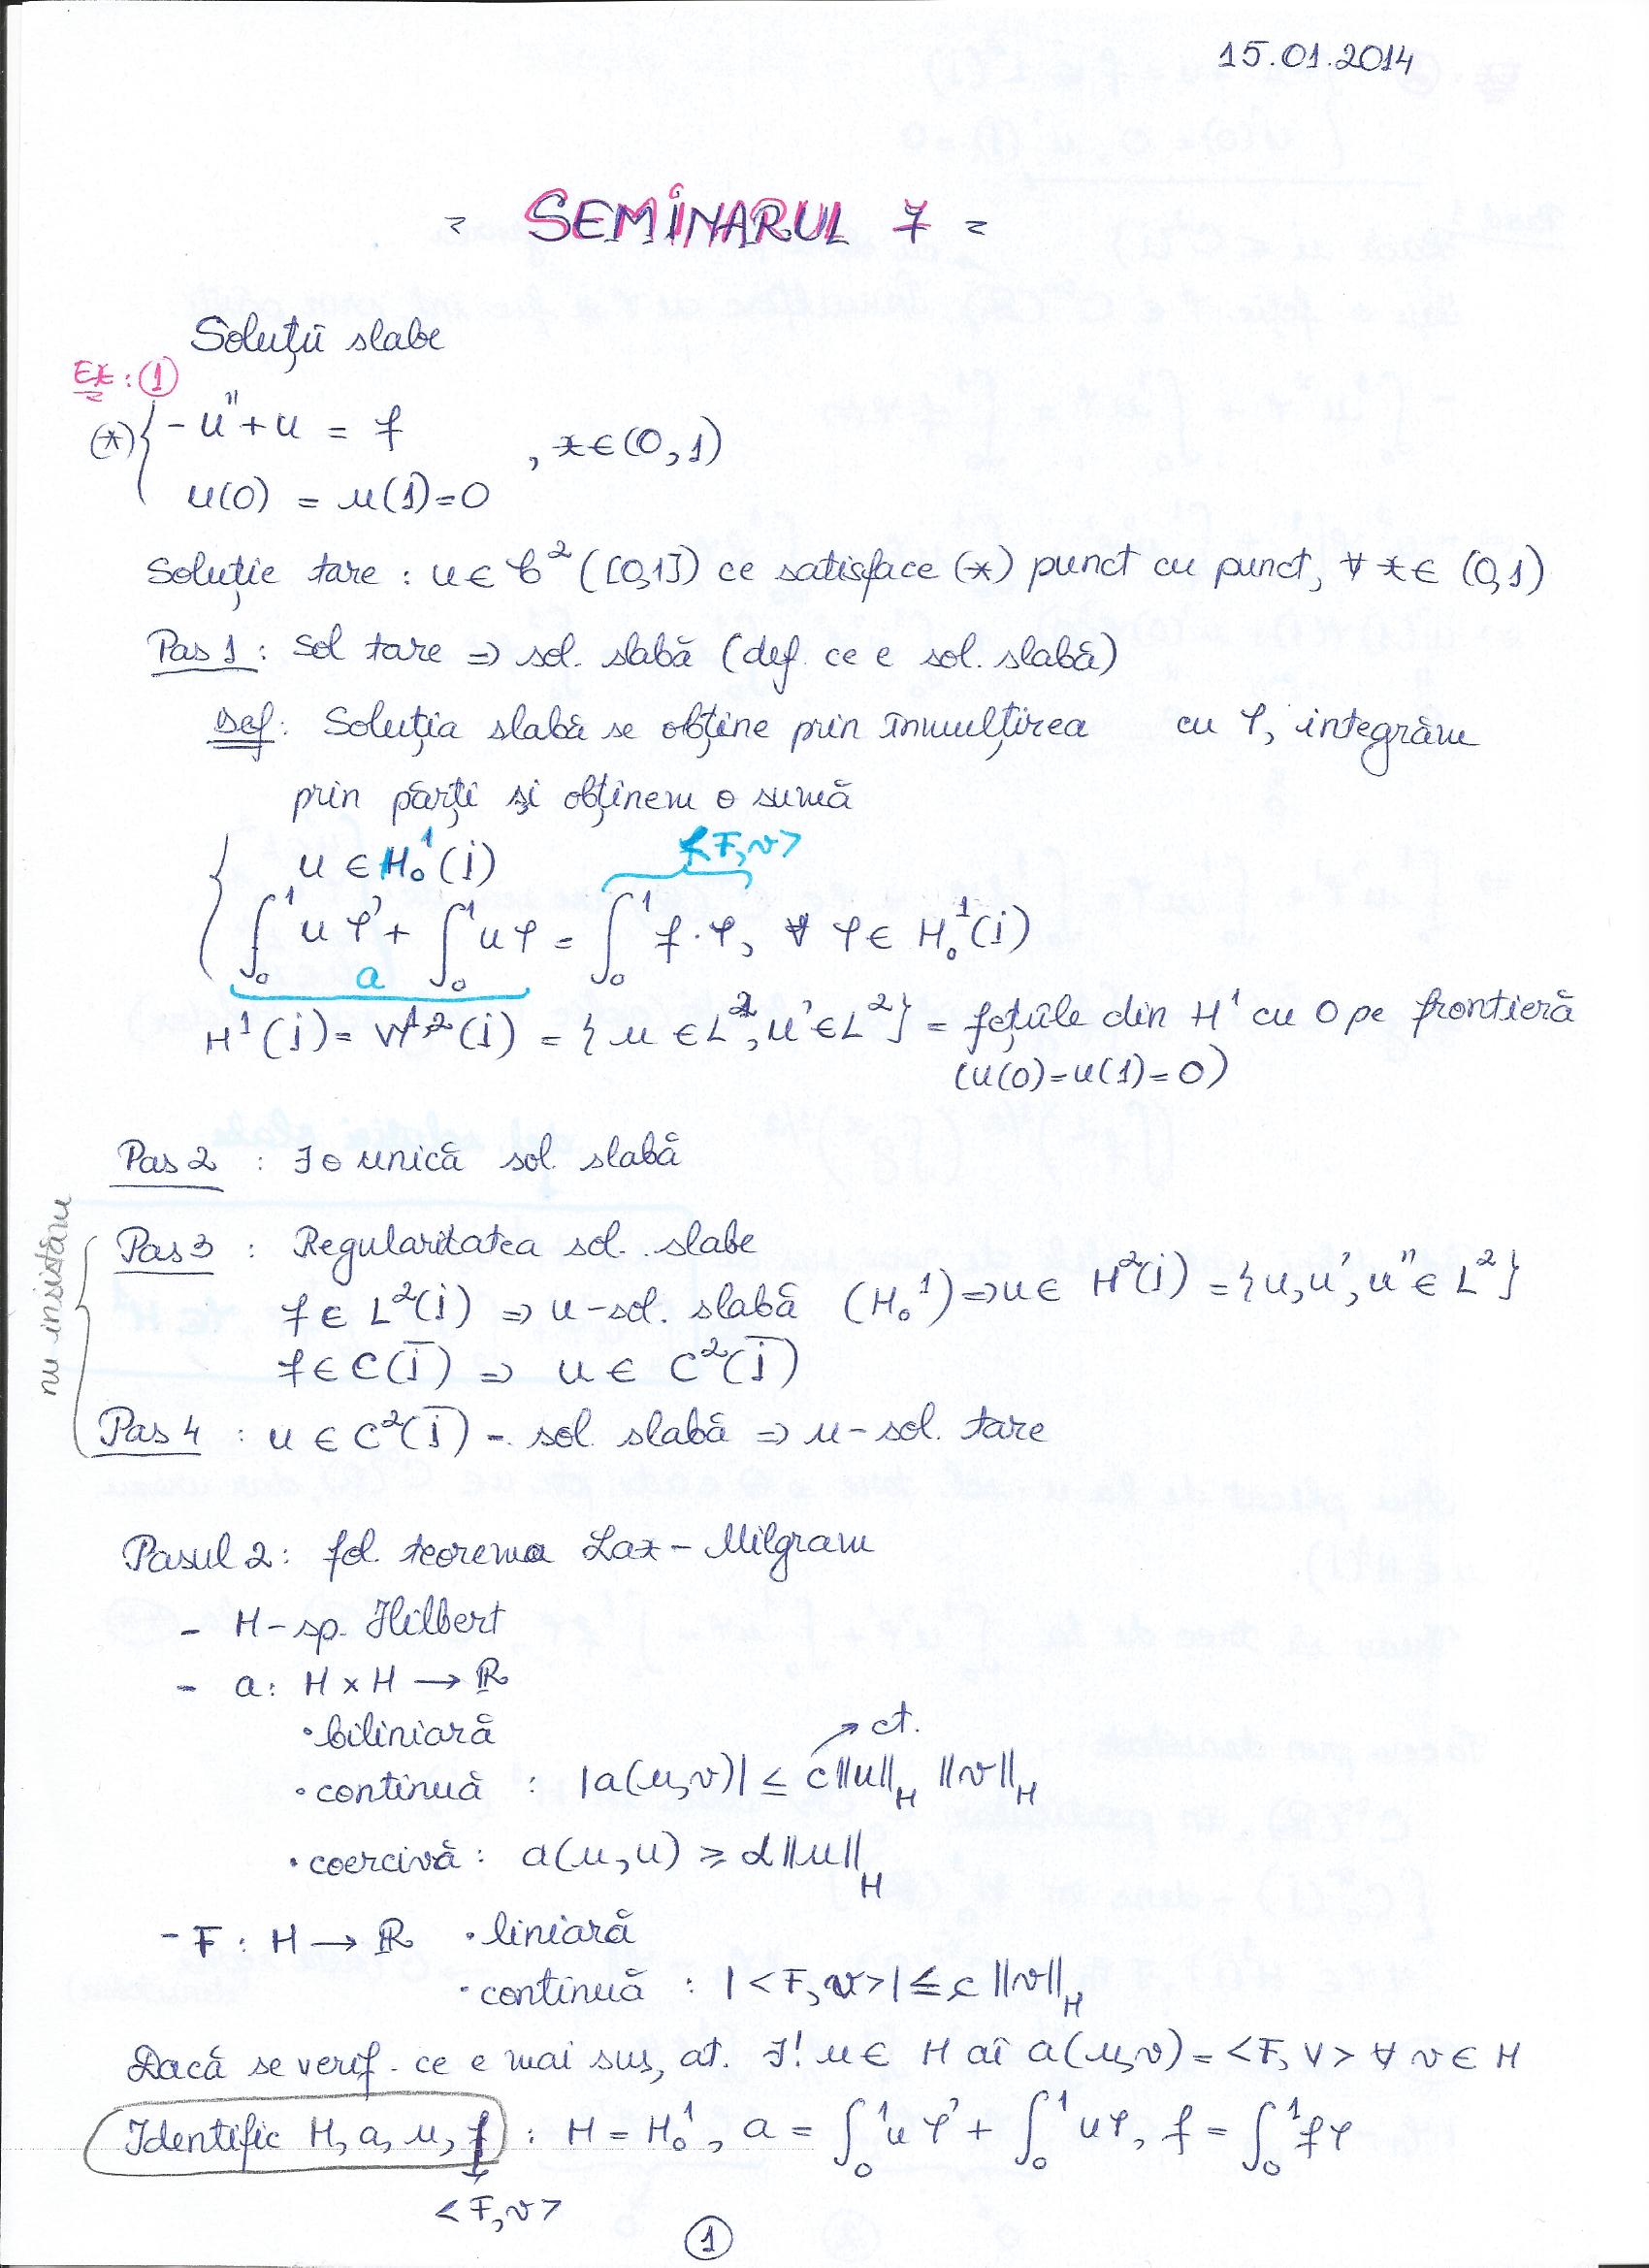 15.01.2014
= SEMINARUL 7 =
Soluții slabe
Ex: (1)
(*) { -u'' + u = f , x ∈ (0,1)
u(0) = u(1) = 0
Soluție tare : u ∈ C² ([0,1]) ce satisface (*) punct cu punct, ∀ x ∈ (0,1)
Pas 1 : Sol tare => sol. slabă (def. ce e sol. slabă)
Def: Soluția slabă se obține prin înmulțirea cu φ, integrăm
prin părți și obținem o sumă
<F,v>
{ u ∈ H₀¹(i)
∫₀¹ u φ' + ∫₀¹ uφ = ∫₀¹ f·φ, ∀ φ ∈ H₀¹(i)
a
H¹(i) = W¹,²(i) = {u ∈ L², u' ∈ L²} = fcțiile din H¹ cu 0 pe frontieră
(u(0)=u(1)=0)
Pas 2 : ∃ o unică sol. slabă
nu insistăm
Pas 3 : Regularitatea sol. slabe
f ∈ L²(i) => u-sol. slabă (H₀¹) => u ∈ H²(i) = {u, u', u'' ∈ L²}
f ∈ C(Ī) => u ∈ C²(Ī)
Pas 4 : u ∈ C²(Ī) - sol. slabă => u-sol. tare
Pasul 2: fol. teorema Lax-Milgram
- H-sp. Hilbert
- a: H × H → ℝ
• biliniară
→ ct.
• continuă : |a(u,v)| ≤ c‖u‖_H ‖v‖_H
• coercivă : a(u,u) ≥ α‖u‖_H
- F : H → ℝ • liniară
• continuă : |<F,v>| ≤ c ‖v‖_H
Dacă se verif. ce e mai sus, at. ∃! u ∈ H aî a(u,v) = <F,v> ∀ v ∈ H
Identific H, a, u, f : H = H₀¹, a = ∫₀¹ u φ' + ∫₀¹ uφ, f = ∫₀¹ fφ
<F,v>
1